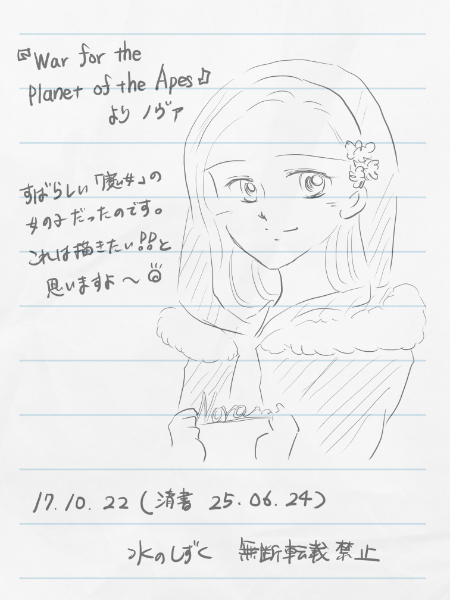 『War for the
Planet of the Apes』
より ノヴァ
すばらしい「魔女」の
女の子だったのです。
これは描きたい!!と
思いますよ～
Nova
17.10.22 (清書 25.06.24)
水のしずく 無断転載禁止